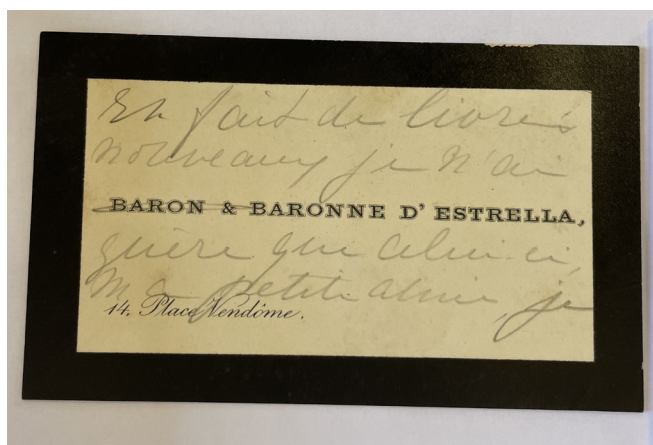 En fait de livres
nouveaux je n'ai
BARON & BARONNE D'ESTRELLA,
guère que celui-ci,
Ma petite amie, je
14, Place Vendôme.